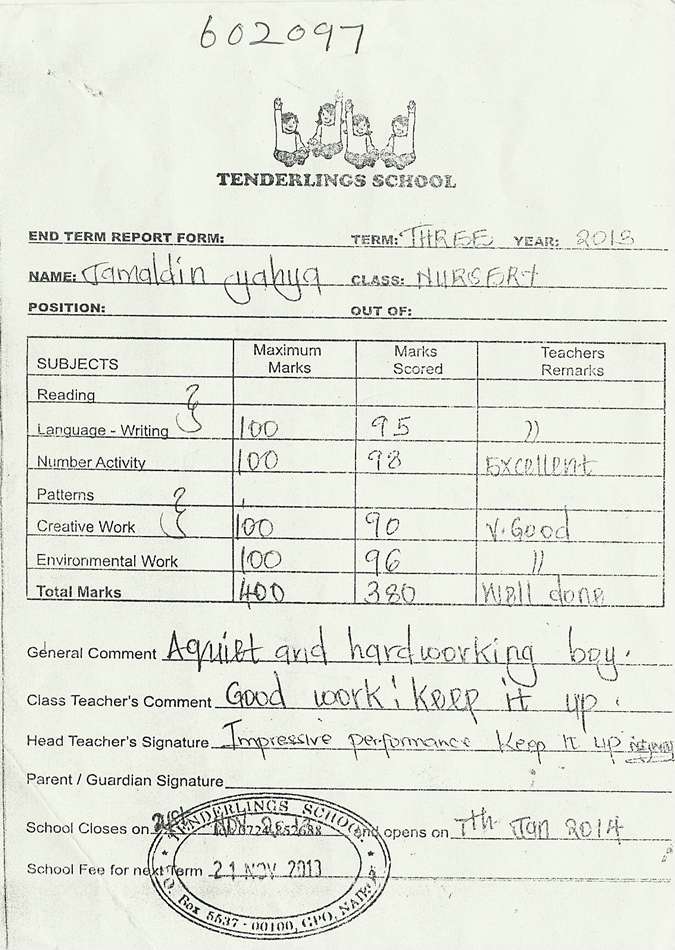 602097
TENDERLINGS SCHOOL
END TERM REPORT FORM: TERM: THREE YEAR: 2013
NAME: Jamaldin Yahya CLASS: NURSERY
POSITION: OUT OF:
SUBJECTS Maximum Marks Marks Scored Teachers Remarks
Reading
Language - Writing 100 95 ))
Number Activity 100 98 Excellent
Patterns
Creative Work 100 90 V. Good
Environmental Work 100 96 ))
Total Marks 400 380 Well done
General Comment A quiet and hardworking boy.
Class Teacher's Comment Good work! keep it up.
Head Teacher's Signature Impressive performance keep it up
Parent / Guardian Signature
School Closes on and opens on 7th Jan 2014
School Fee for next Term
TENDERLINGS SCHOOL
21 NOV 2013
P.O. Box 5537 - 00100, GPO, NAIROBI